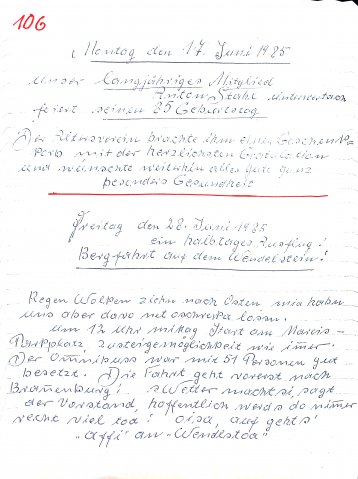 106
Montag den 17. Juni 1985
unser langjähriges Mitglied
Anton Stahl
feiert seinen 85 Geburtstag
Der Altersverein brachte ihm einen Geschenk
mit der herzlichsten Gratulation
und wünschte weiterhin alles gute ganz
besonders Gesundheit
Freitag den 28. Juni 1985
ein halbtages Ausflug!
Bergfahrt auf dem Wendelstein!
Regen Wolken ziehn nach Osten mia habm
uns aber davo net oschrecka lassn.
um 12 Uhr mittag Start am Mareis-
Parkplatz, zusteigemöglichkeit wie imer.
Der Omnibuss war mit 51 Personen gut
besetzt. Die Fahrt geht vorerst nach
Branenburg! s'Wetter machtsi, sagt
der Vorstand, hoffentlich werds do nimer
recht viel toa! oisa, auf gehts
"Affi aun Wendlstoa"